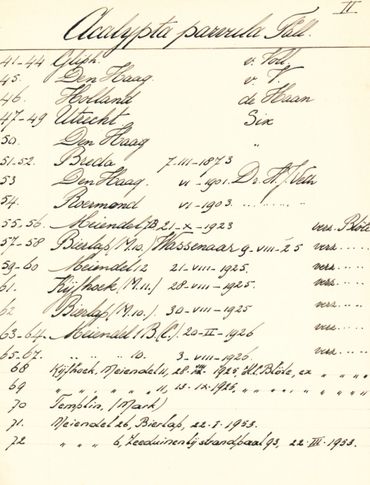 II
Acalypta parvula Fall.
41-44 Glph. v. Voll.
45. Den Haag. v. V.
46. Holland de Haan
47-49 Utrecht. Six
50. Den Haag "
51-52. Breda 7-III-1873
53 Den Haag. VI-1901. Dr. A. J. Veth
54. Roermond VI-1903. .. .. .. ..
55-56. Meiendel, 21-X-1923 verz. Blöte
57-58 Bierlap, (M.10.) Wassenaar 9-VIII-25 verz. .. ..
59-60 Meiendel 12 21-VIII-1925, verz. .. ..
61. Kijfhoek, (M.11.) 28-VIII-1925. verz. .. ..
62 Bierlap, (M.10.) 30-VIII-1925 verz. .. ..
63-64. Meiendel 1 B.(C.) 20-II-1926 verz. .. ..
65-67. .. .. .. 10. 3-VIII-1926 verz. .. ..
68 Kijfhoek, Meiendel 11, 28. 1925, H.C. Blöte, ex " " "
69 " " " " 11, 13.IX.1925, " " " " " "
70 Templin, (Mark)
71. Meiendel 26, Bierlap, 22.I.1953.
72 " " " 6, Zeeduinen bij strandpaal 93, 22.III.1953.